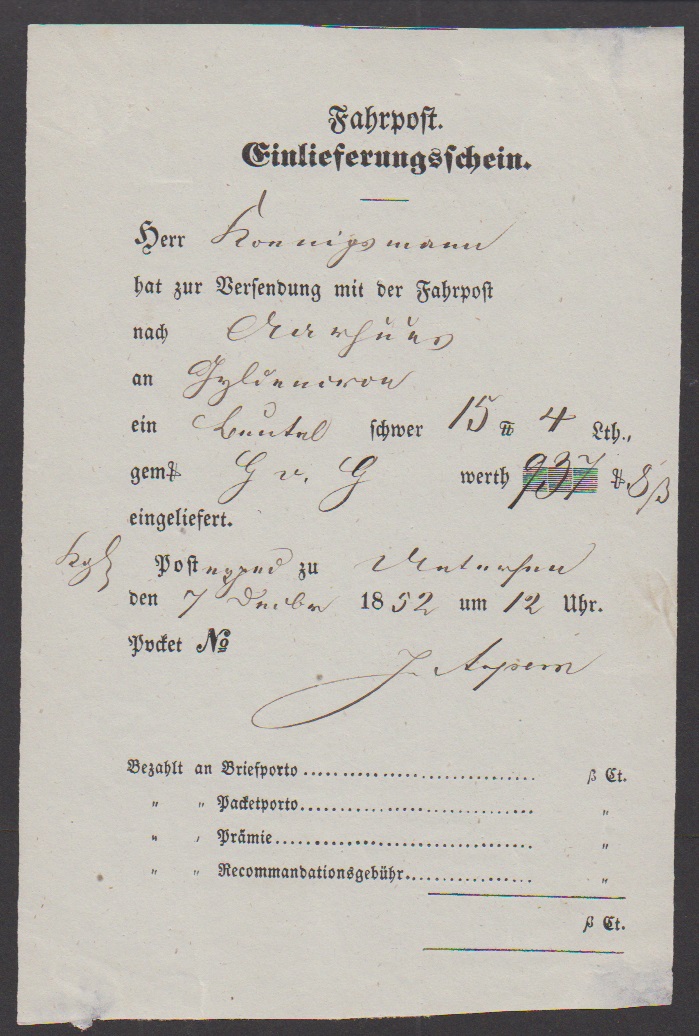 Fahrpost.
Einlieferungsschein.
Herr Koenigsmann
hat zur Versendung mit der Fahrpost
nach Aarhuus
an Gyldencron
ein Beutel schwer 15 ℔ 4 Lth.,
gem# G v. G werth 937 ₰ 8 β
eingeliefert.
Kgl Postexped zu Uetersen
den 7 Decbr 1852 um 12 Uhr.
Packet №
Bezahlt an Briefporto .............................. β Ct.
" " Packetporto .............................. "
" " Prämie .............................. "
" " Recommandationsgebühr .................. "
β Ct.